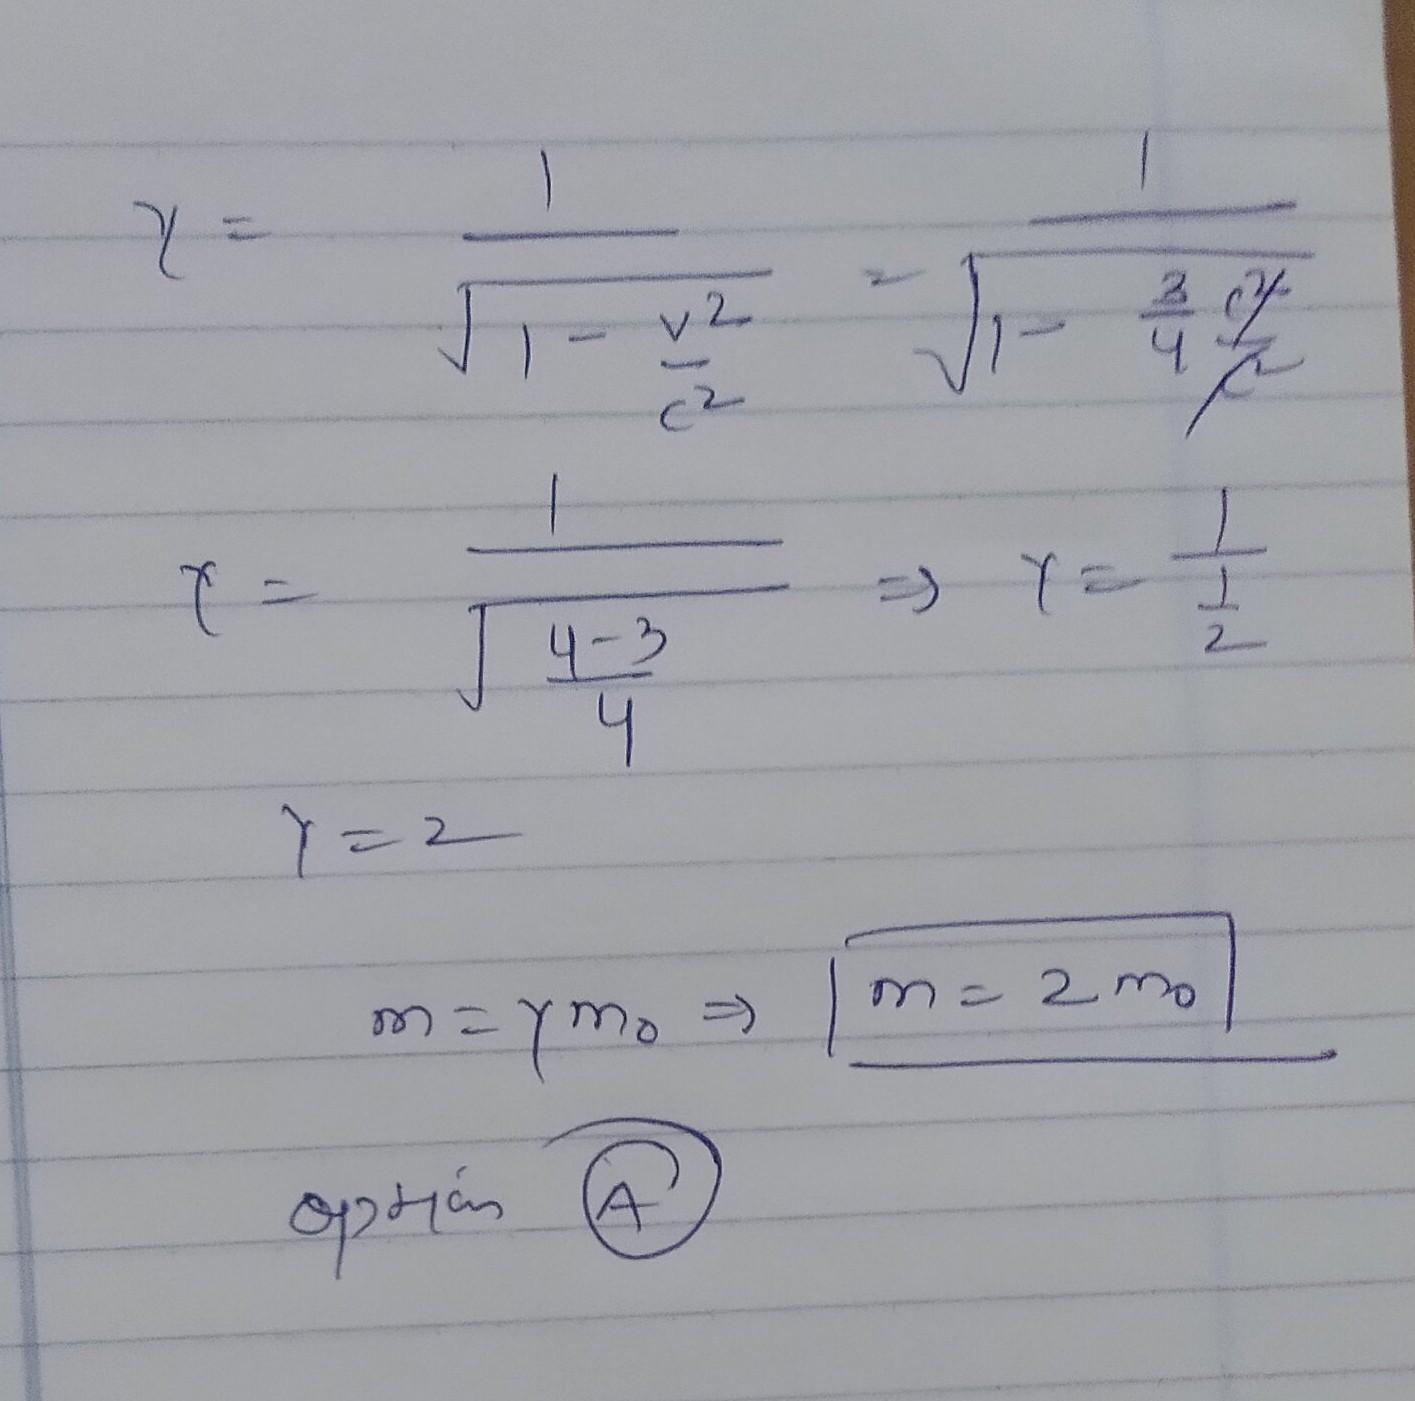 γ = 1/√(1 - v²/c²) = 1/√(1 - 3/4 c²/c²)
γ = 1/√((4-3)/4) ⇒ γ = 1/(1/2)
γ = 2
m = γ m₀ ⇒ m = 2 m₀
option A